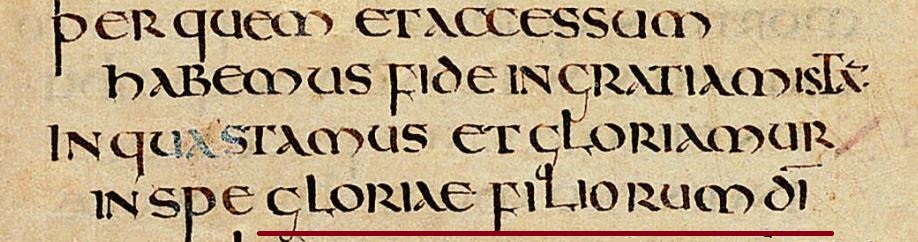 per quem et accessum
habemus fide in gratiam istā
in qua stamus et gloriamur
in spe gloriae filiorum dī